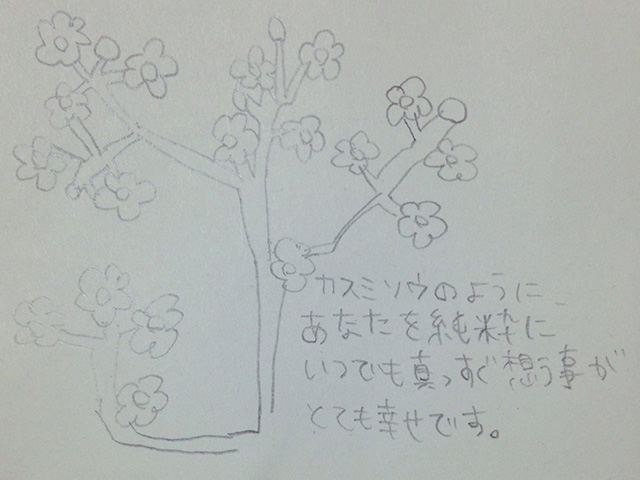 カスミソウのように
あなたを純粋に
いつでも真っすぐ想う事が
とても幸せです。